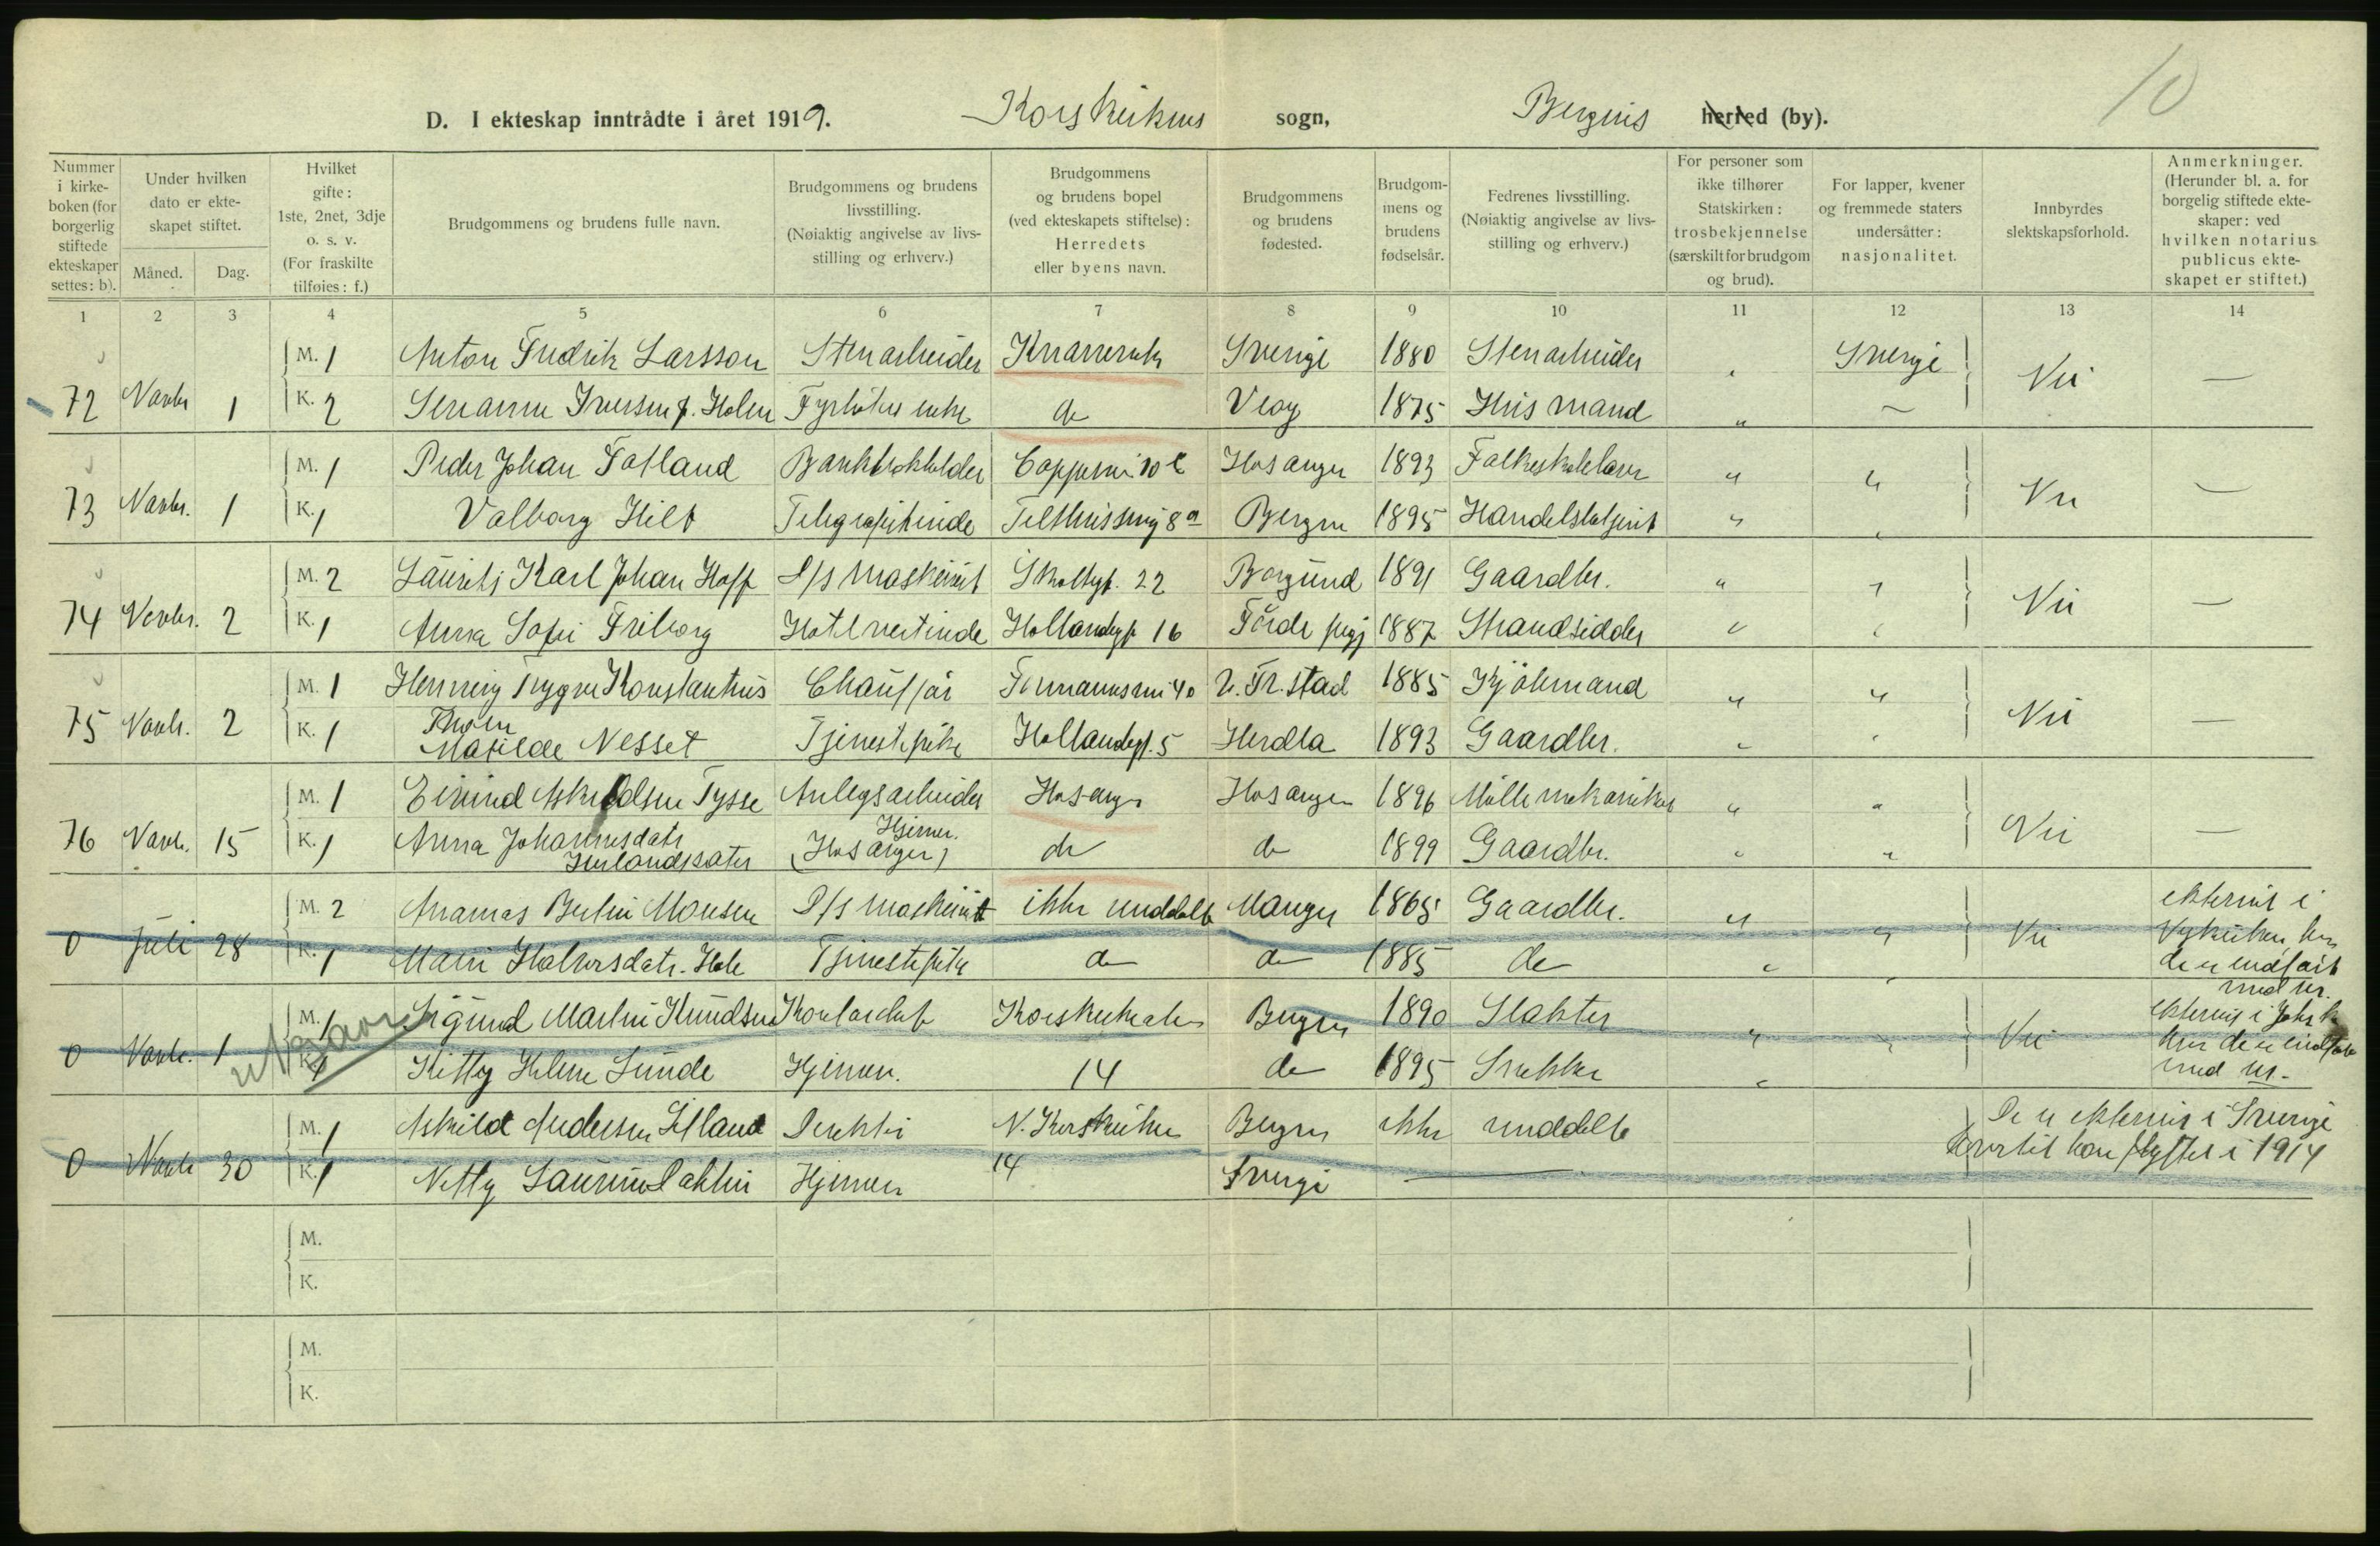 10
D. I ekteskap inntrådte i året 1919. Korskirkens sogn, Bergens herred (by).
Nummer i kirkeboken (for borgerlig stiftede ekteskaper settes: b).
Under hvilken dato er ekteskapet stiftet.
Måned. Dag.
Hvilket gifte: 1ste, 2net, 3dje o. s. v. (For fraskilte tilføies: f.)
Brudgommens og brudens fulle navn.
Brudgommens og brudens livsstilling. (Nøiaktig angivelse av livsstilling og erhverv.)
Brudgommens og brudens bopel (ved ekteskapets stiftelse): Herredets eller byens navn.
Brudgommens og brudens fødested.
Brudgommens og brudens fødselsår.
Fedrenes livsstilling. (Nøiaktig angivelse av livsstilling og erhverv.)
For personer som ikke tilhører Statskirken: trosbekjennelse (særskilt for brudgom og brud).
For lapper, kvener og fremmede staters undersåtter: nasjonalitet.
Innbyrdes slektskapsforhold.
Anmerkninger. (Herunder bl. a. for borgelig stiftede ekteskaper: ved hvilken notarius publicus ekteskapet er stiftet.)
1 2 3 4 5 6 7 8 9 10 11 12 13 14
M. 1 Anton Fredrik Larsson Stenarbeider Sverige 1880 Stenarbeider " Sverige
72 Novbr 1 K. 2 Iversen f. Holen do Veøy 1875 Husmand " — Nei —
M. 1 Peder Johan Fotland Bankbokholder 10 Hosanger 1893 Folkeskolelærer " "
73 Novbr. 1 K. 1 Valborg Hilt Telegrafistinde 8a Bergen 1895 Handelsbetjent " " Nei —
M. 2 Laurits Karl Johan Hoff D/s maskinist 22 Borgund 1891 Gaardbr. " "
74 Novbr. 2 K. 1 Anna Sofie Friborg Hotelvertinde Hollendergt 16 Førde 1887 Strandsidder " " Nei —
M. 1 Henning Trygve Konstantius Chauffør Formannsvei 40 Fr.stad 1885 Kjøbmand " "
75 Novb. 2 K. 1 Matilde Nesset Tjenestepike Hollendergt. 5 Herdla 1893 Gaardbr. " " Nei —
M. 1 Eivind Askildsen Tysse Anlegsarbeider Hosanger Hosanger 1896 Møllemekaniker " "
Hjemme.
76 Novb. 15 K. 1 Anna Johannesdatr (Hosanger) do do 1899 Gaardbr. " " Nei —
M. 2 Monsen D/s maskinist ikke meddelt Manger 1865 Gaardbr. " ekteviet i
0 Juli 28 K. 1 Mari Tjenestepike do do 1885 do " " Nei hvor
de er indført
med nr.
M. 1 Sigurd Martin Knudsen Kontorchef Korskirkealm Bergen 1890 Slakter ekteviet i Joh. k
0 Novbr. 1 K. 1 Kitty Helene Sunde Hjemme. 14 do 1895 Snekker " " Nei hvor de er indført
med nr.
M. 1 Askild Andersen Direktør N. Korskirkealm Bergen ikke meddelt De er ekteviet i Sverige
0 Novb 30 K. 1 Netty Hjemme 14 Sverige — hvortil han flyttet i 1914
M.
K.
M.
K.